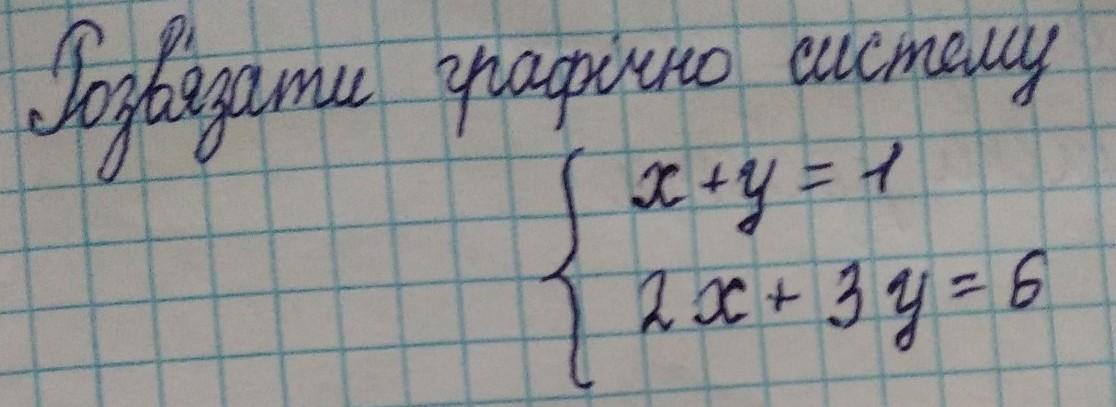 Розв'язати графічно систему
x + y = 1
2x + 3y = 6